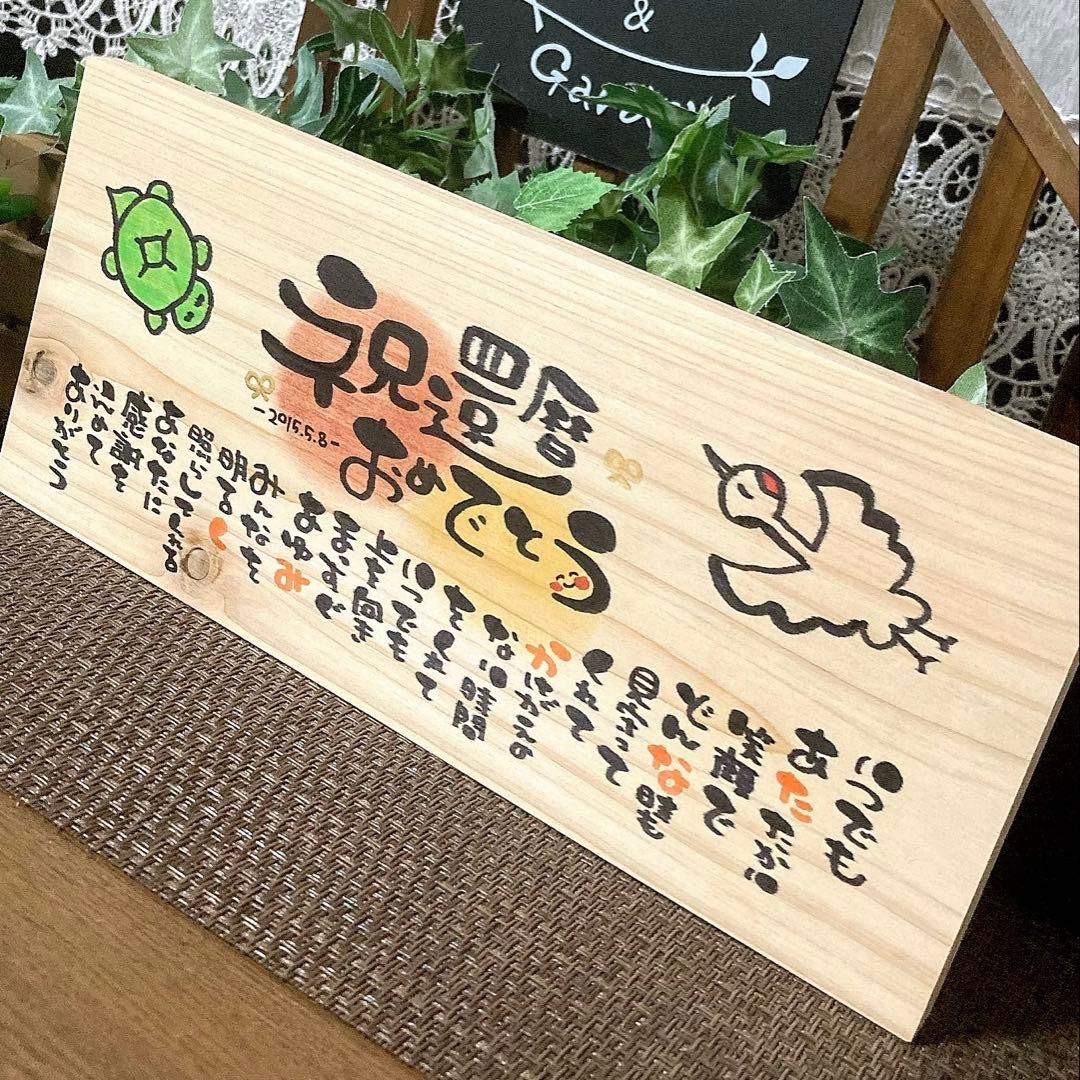 &
Garden
祝還暦
おめでとう
-2015.5.8-
いつでも
あたたかい
笑顔で
どんな時も
見守って
くれて
かけがえの
ない時間
をくれて
いつでも
上を向き
まっすぐ
あゆむ
みんなを
明るく
照らしてくれる
あなたに
感謝を
込めて
ありがとう